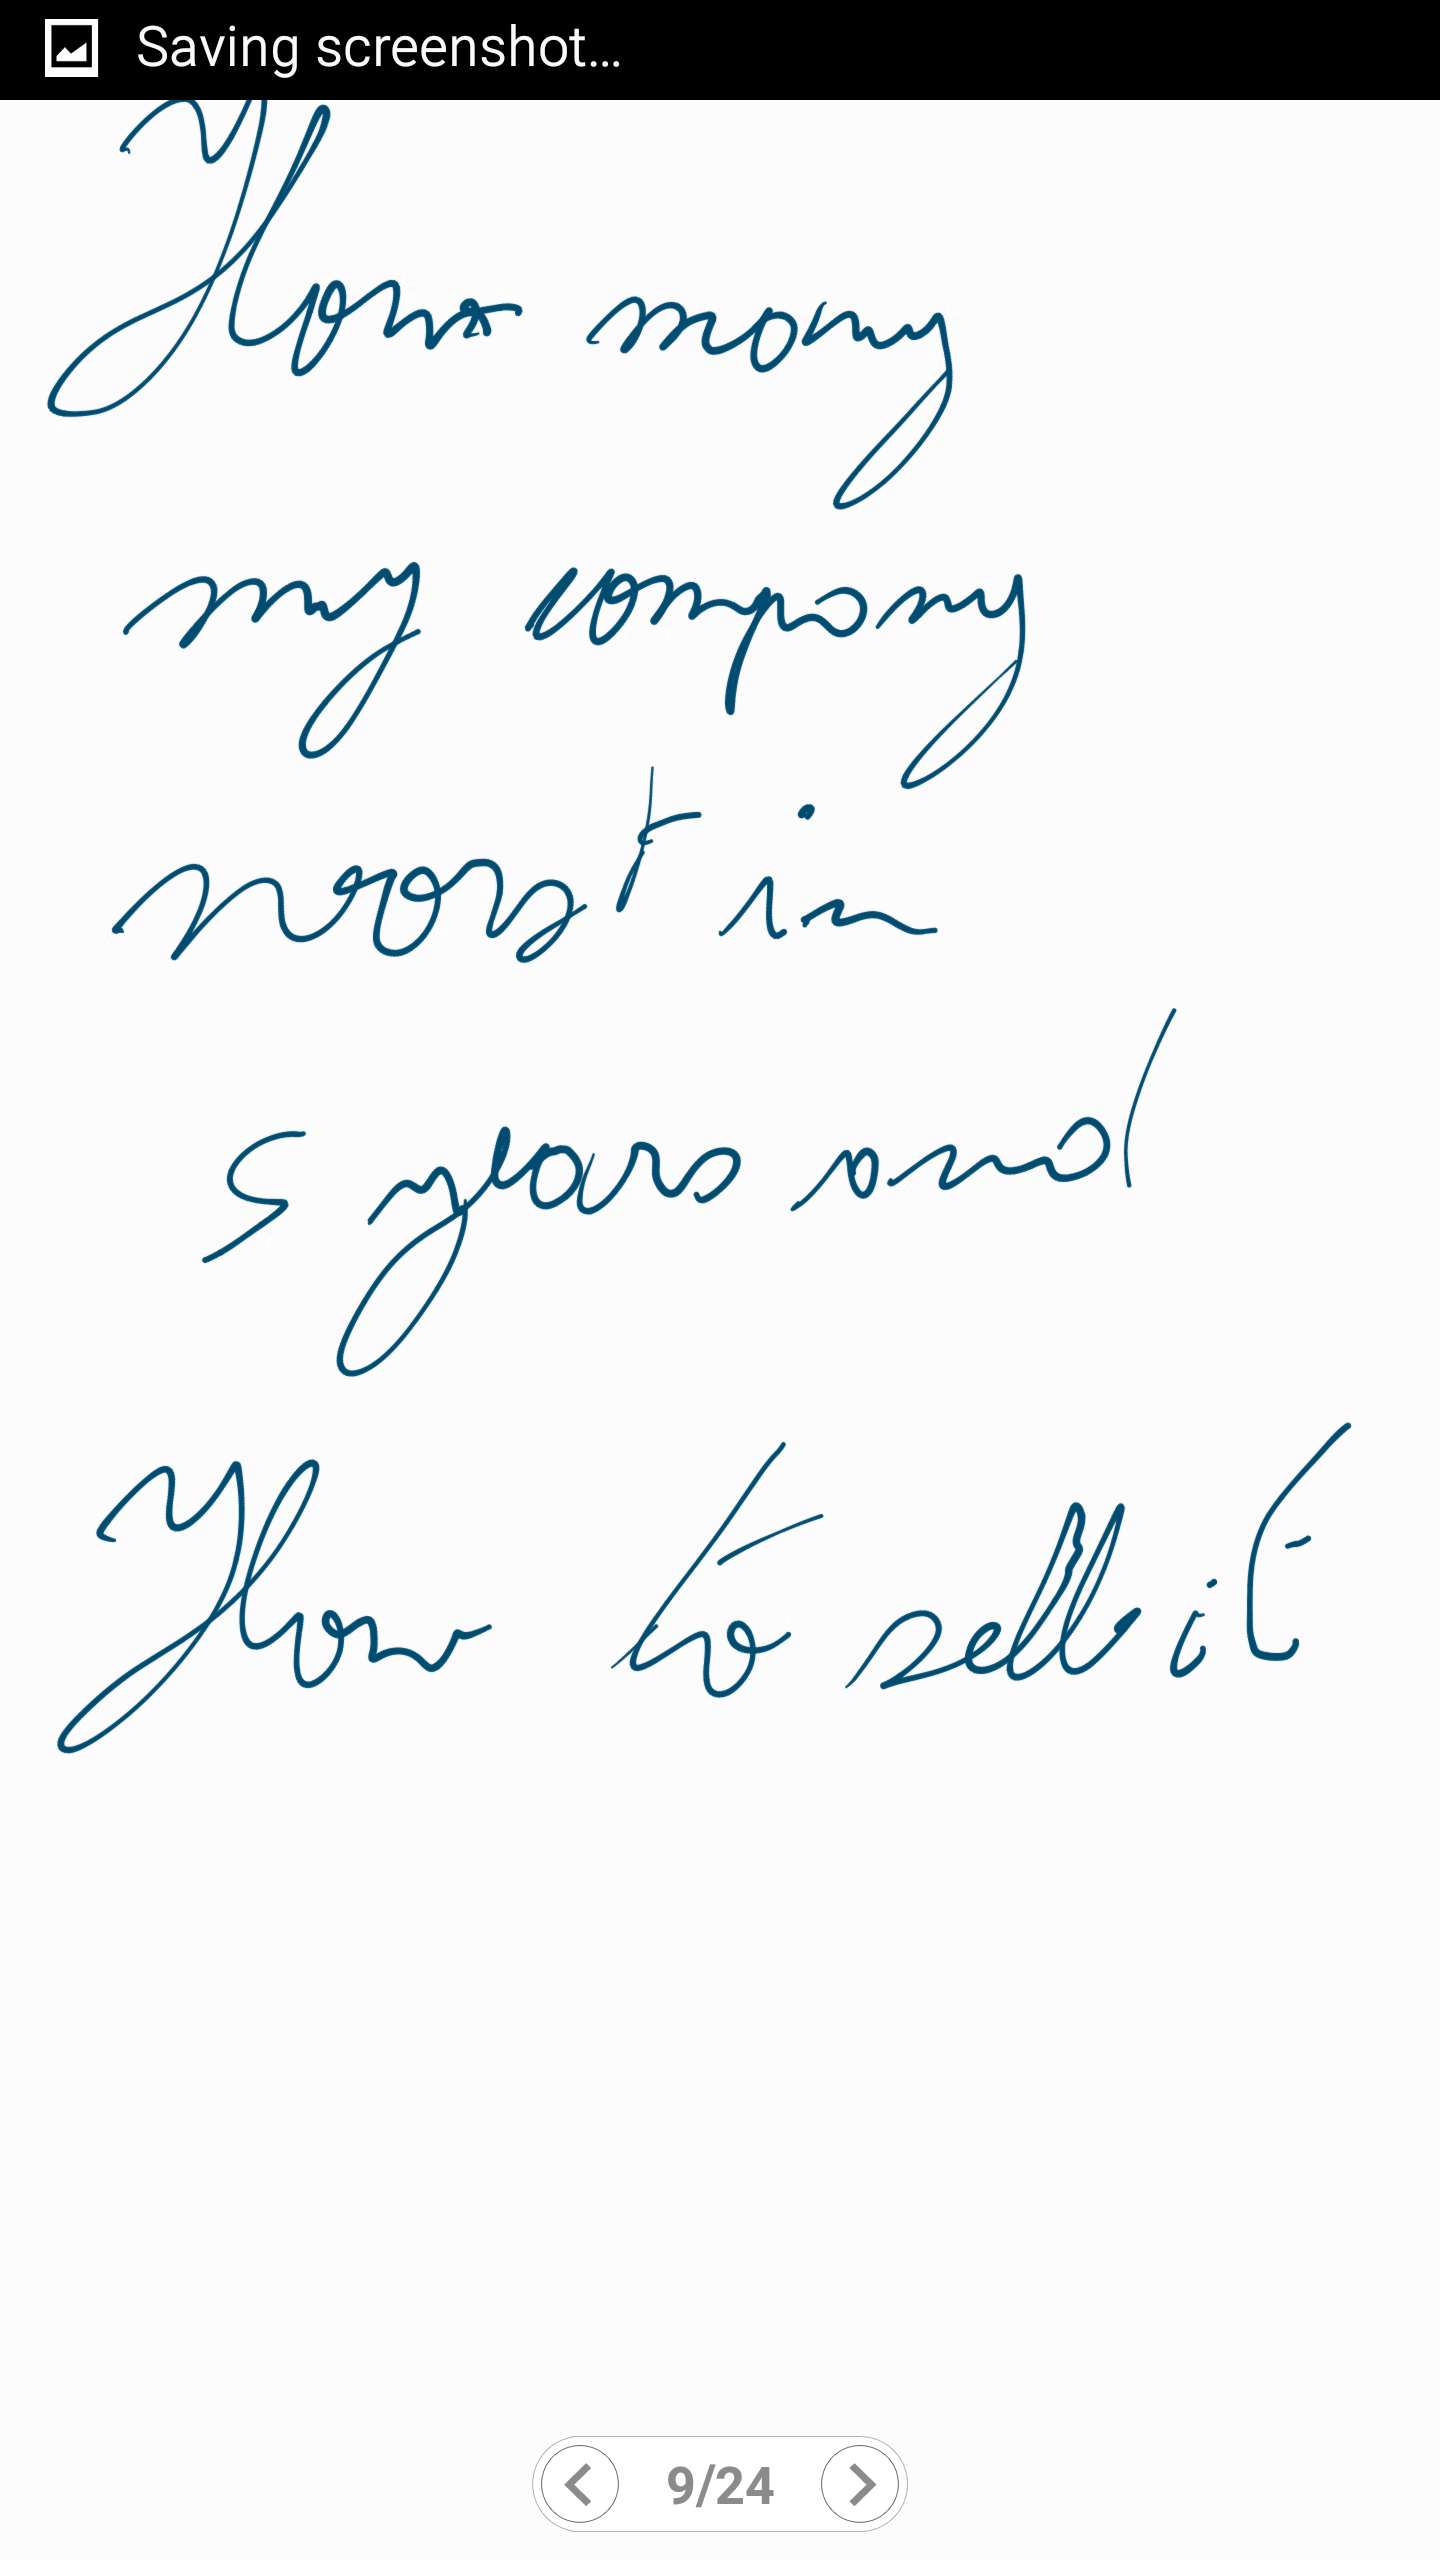 Saving screenshot...
How many
my company
worst in
5 years and
How to sell it
9/24